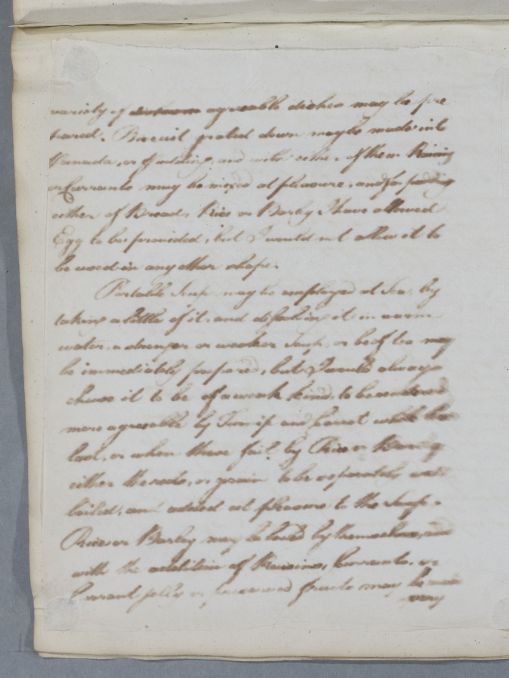 variety of agreeable dishes may be pre
pared. Biscuit grated down may be made into
Panada, or of and with either of these Raisins
or Currants may be mixed at pleasure, and for pudding
either of Bread, Rice or Barley I have allowed
Egg to be provided, but I would not allow it to
be used in any other shape.
Portable Soup may be employed at Sea, by
taking a little of it, and dissolving it in warm
water, a stronger or weaker Soup or beef tea may
be immediately prepared, but I would always
chuse it to be of a weak kind, to be rendered
more agreeable by Turnip and Carrot while they
last, or when these fail, by Rice or Barley
either the roots, or grain to be separately
boiled, and added at pleasure to the Soup.
Rice or Barley may be used by themselves, or
with the addition of Raisins, Currants, or
Currant jelly or preserved fruits may be
very